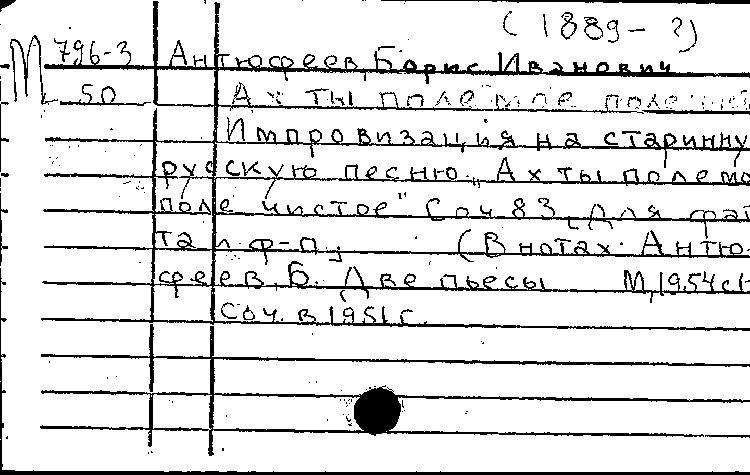 (1889-?)
М 796-3 Антюфеев, Борис Иванович
50 Ах ты поле мое поле
Импровизация на старинну
русскую песню „Ах ты поле мо
поле чистое" Соч 83 [Для фаг
та и ф-п]; (В нотах: Антю-
феев, Б. Две пьесы М, 1954 с1-
Соч. в 1951 г.